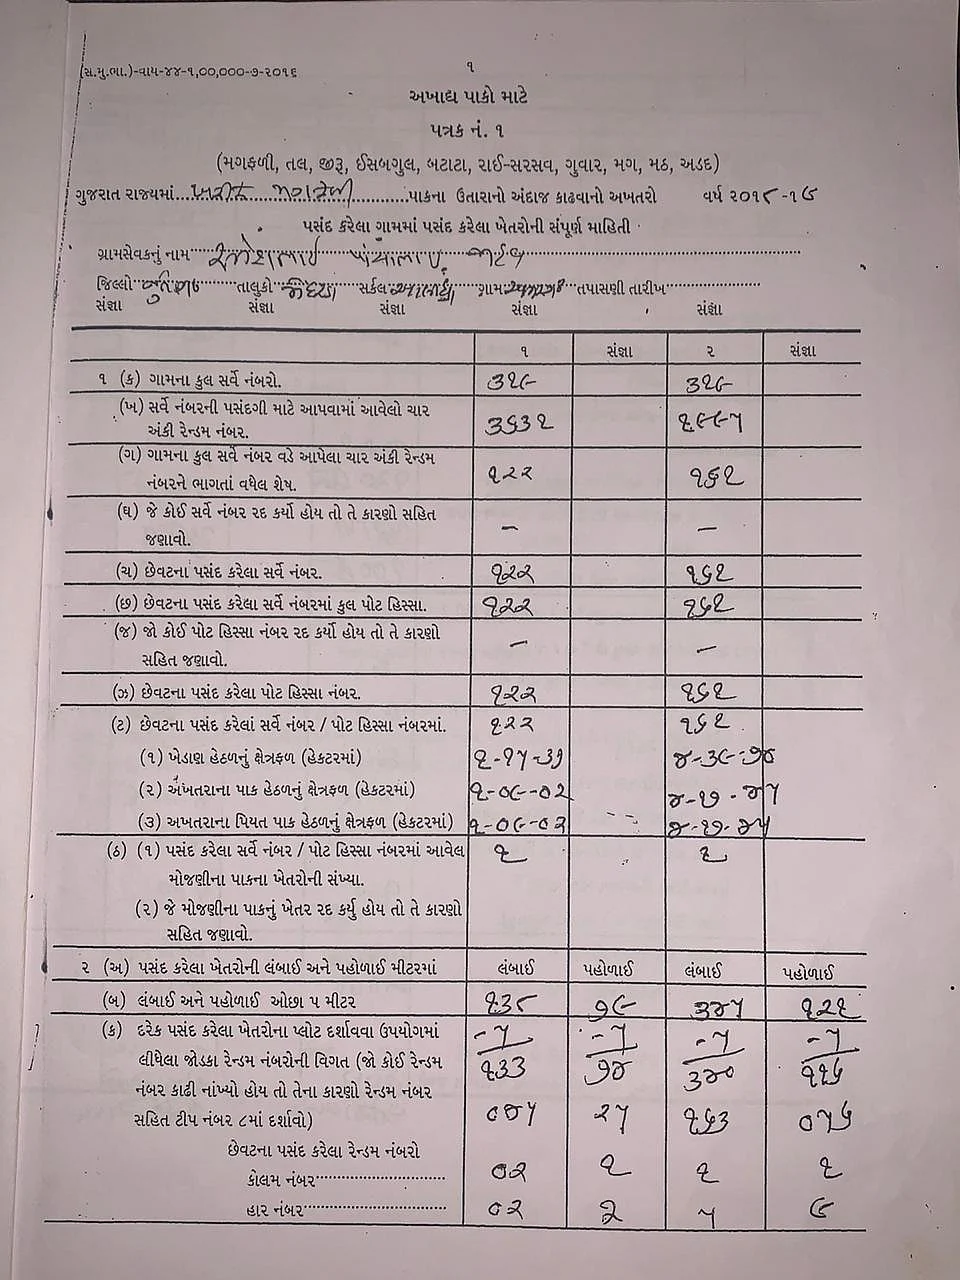 (સ.મુ.ભા.)-વાય-૪૪-૧,૦૦,૦૦૦-૭-૨૦૧૬
૧
અખાદ્ય પાકો માટે
પત્રક નં. ૧
(મગફળી, તલ, જીરૂ, ઈસબગુલ, બટાટા, રાઈ-સરસવ, ગુવાર, મગ, મઠ, અડદ)
ગુજરાત રાજ્યમાં ખરીફ મગફળી પાકના ઉતારાનો અંદાજ કાઢવાનો અખતરો વર્ષ ૨૦૧૮-૧૯
પસંદ કરેલા ગામમાં પસંદ કરેલા ખેતરોની સંપૂર્ણ માહિતી
ગ્રામસેવકનું નામ
જિલ્લો તાલુકો સર્કલ ગ્રામ તપાસણી તારીખ
સંજ્ઞા સંજ્ઞા સંજ્ઞા સંજ્ઞા સંજ્ઞા
૧ સંજ્ઞા ૨ સંજ્ઞા
૧ (ક) ગામના કુલ સર્વે નંબરો. ૩૨૯ ૩૨૯
(ખ) સર્વે નંબરની પસંદગી માટે આપવામાં આવેલો ચાર
અંકી રેન્ડમ નંબર. ૩૬૩૨ ૧૯૯૫
(ગ) ગામના કુલ સર્વે નંબર વડે આપેલા ચાર અંકી રેન્ડમ
નંબરને ભાગતાં વધેલ શેષ. ૧૨૨ ૧૬૧
(ઘ) જે કોઈ સર્વે નંબર રદ કર્યો હોય તો તે કારણો સહિત – –
જણાવો.
(ચ) છેવટના પસંદ કરેલા સર્વે નંબર. ૧૨૨ ૧૬૧
(છ) છેવટના પસંદ કરેલા સર્વે નંબરમાં કુલ પોટ હિસ્સા. ૧૨૨ ૧૬૧
(જ) જો કોઈ પોટ હિસ્સા નંબર રદ કર્યો હોય તો તે કારણો – –
સહિત જણાવો.
(ઝ) છેવટના પસંદ કરેલા પોટ હિસ્સા નંબર. ૧૨૨ ૧૬૧
(ટ) છેવટના પસંદ કરેલાં સર્વે નંબર / પોટ હિસ્સા નંબરમાં. ૧૨૨ ૧૬૧
(૧) ખેડાણ હેઠળનું ક્ષેત્રફળ (હેક્ટરમાં) ૧-૧૫-૩૭ ૪-૩૯-૭૪
(૨) અખતરાના પાક હેઠળનું ક્ષેત્રફળ (હેક્ટરમાં) ૧-૦૯-૦૨ ૪-૧૭-૪૫
(૩) અખતરાના પિયત પાક હેઠળનું ક્ષેત્રફળ (હેક્ટરમાં) ૧-૦૯-૦૨ -- ૪-૧૭-૪૫
(ઠ) (૧) પસંદ કરેલા સર્વે નંબર / પોટ હિસ્સા નંબરમાં આવેલ ૧ ૧
મોજણીના પાકના ખેતરોની સંખ્યા.
(૨) જે મોજણીના પાકનું ખેતર રદ કર્યુ હોય તો તે કારણો
સહિત જણાવો.
૨ (અ) પસંદ કરેલા ખેતરોની લંબાઈ અને પહોળાઈ મીટરમાં લંબાઈ પહોળાઈ લંબાઈ પહોળાઈ
(બ) લંબાઈ અને પહોળાઈ ઓછા ૫ મીટર ૧૩૮ ૭૯ ૩૪૫ ૧૨૧
(ક) દરેક પસંદ કરેલા ખેતરોના પ્લોટ દર્શાવવા ઉપયોગમાં -૫ -૫ -૫ -૫
લીધેલા જોડકા રેન્ડમ નંબરોની વિગત (જો કોઈ રેન્ડમ ૧૩૩ ૭૪ ૩૪૦ ૧૧૬
નંબર કાઢી નાંખ્યો હોય તો તેના કારણો રેન્ડમ નંબર
સહિત ટીપ નંબર ૮માં દર્શાવો) ૦૪૫ ૨૫ ૧૬૩ ૦૫૬
છેવટના પસંદ કરેલા રેન્ડમ નંબરો
કોલમ નંબર ૦૨ ૧ ૧ ૧
હાર નંબર ૦૨ ૨ ૫ ૬